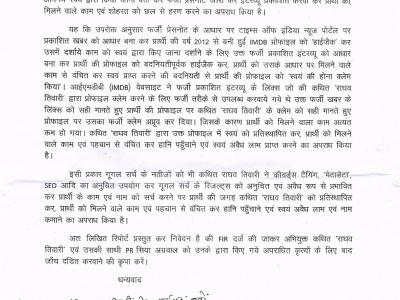 मिलने वाले काम एवं शोहरत को छल से हरण करने का अपराध किया है।
यह कि उपरोक्त अनुसार फर्जी प्रेसनोट के आधार पर टाइम्स ऑफ इंडिया न्यूज पोर्टल पर
प्रकाशित खबर को आधार बना कर प्रार्थी की वर्ष 2012 से बनी हुई IMDB प्रोफाइल को 'हाईजेक' कर
उसमें दर्शाये काम को स्वयं द्वारा किए जाना दर्शाने के लिए उक्त फर्जी इंटरव्यू को आधार
बना कर प्रार्थी की प्रोफाइल को बदनियतीपूर्वक हाईजेक कर, प्रार्थी को उसके आधार पर मिलने वाले
काम से वंचित कर स्वयं प्राप्त करने की बदनियती से प्रार्थी की प्रोफाइल को 'स्वयं की होना क्लेम
किया'। आईएमडीबी (IMDB) वेबसाइट ने फर्जी प्रकाशित इंटरव्यू के लिंक्स जो की कथित 'राघव
तिवारी' द्वारा प्रोफाइल क्लेम करने के लिए फर्जी तरीके से उपलब्ध करवाये गये थे उक्त फर्जी खबर के
लिंक्स को सही मानते हुए प्रार्थी की प्रोफाइल पर कथित 'राघव तिवारी' के क्लेम को सही मानते हुए
प्रोफाइल पर उसका फर्जी क्लेम अप्रूव कर दिया। जिसके कारण प्रार्थी को मिलने वाला काम अत्यंत
कम हो गया। कथित 'राघव तिवारी' द्वारा उक्त प्रोफाइल में स्वयं को प्रतिस्थापित कर, प्रार्थी को मिलने
वाले काम एवं पहचान से वंचित कर हानि पहुँचाने एवं स्वयं अवैध लाभ प्राप्त करने का अपराध किया
है।
इसी प्रकार गूगल सर्च के नतीजों को भी कथित राघव तिवारी ने कीवर्ड्स टैगिंग, 'मेटाडेटा',
SEO आदि का अनुचित उपयोग कर गूगल सर्च के रिजल्ट्स को अनुचित एवं अवैध रूप से प्रभावित
कर प्रार्थी के काम एवं नाम को सर्च करने पर प्रार्थी की जगह कथित 'राघव तिवारी' को प्रतिस्थापित
कर, प्रार्थी को मिलने वाले काम एवं पहचान से वंचित कर हानि पहुँचाने एवं स्वयं अवैध लाभ एवं नाम
कमाने का अपराध किया है।
अतः लिखित रिपोर्ट प्रस्तुत कर निवेदन है की FIR दर्ज की जाकर अभियुक्त कथित 'राघव
तिवारी' एवं उसकी साथी PR सिया अग्रवाल को उनके द्वारा किए गए अपराधिक कृत्यों के लिए बाद
जाँच दंडित करवाने की कृपा करें।
धन्यवाद